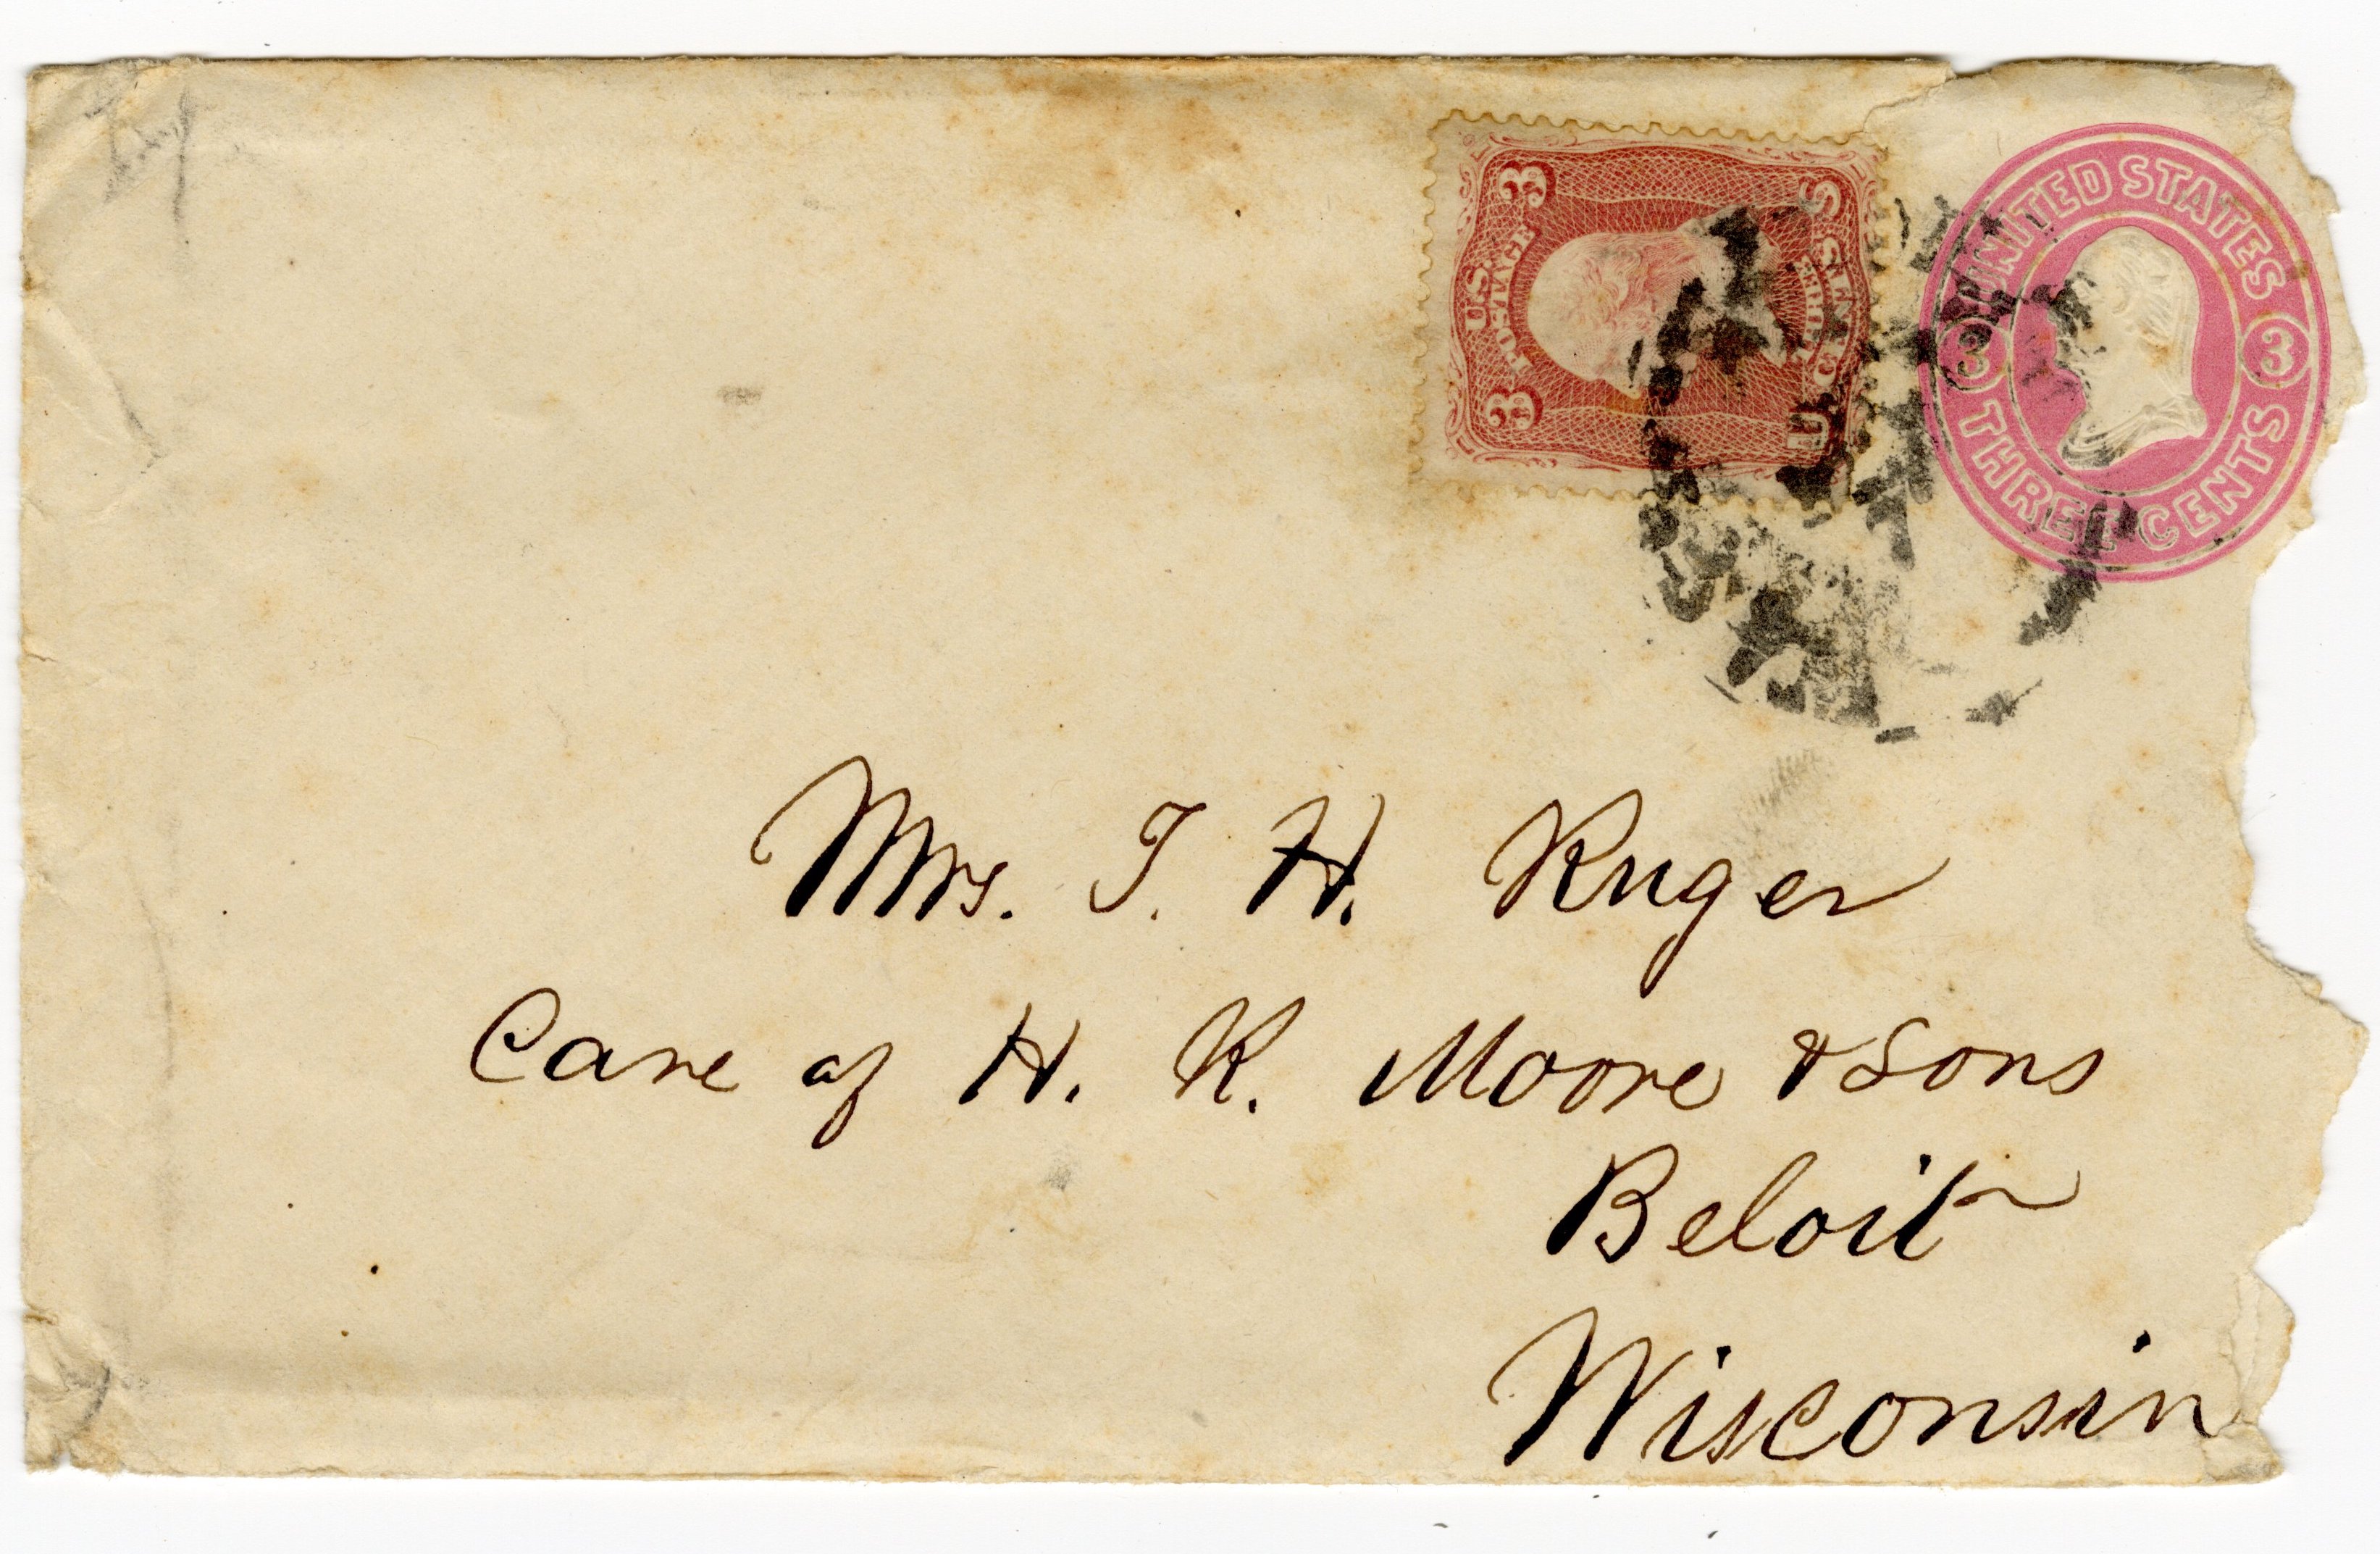 3 U.S. POSTAGE 3
THREE CENTS
U S
UNITED STATES
3 3
THREE CENTS
Mrs. T. H. Ruger
Care of H. K. Moore & Sons
Beloit
Wisconsin